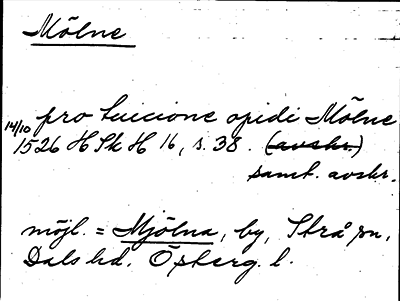 Mölne
pro tuicione opidi Mölne
14/10 1526 H Sk H 16, s. 38. (avskr.)
samt. avskr.
möjl. = Mjölna, by, Strå sn,
Dals hd. Östberg. l.